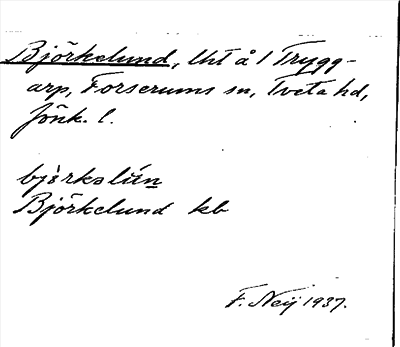 Björkelund, Uht å 1 Trygg-
arp, Forserums sn, Tveta hd,
Jönk. l.
Björkelund kb
F. Neij 1937.